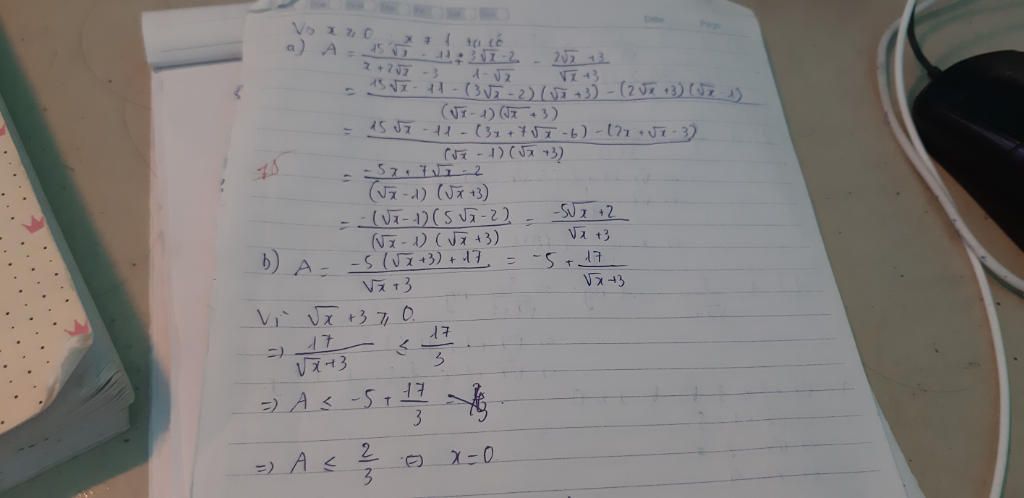 Với x ≥ 0, x ≠ 1 ta có
a) A = (15√x - 11)/(x + 2√x - 3) + (3√x - 2)/(1 - √x) - (2√x + 3)/(√x + 3)
= (15√x - 11 - (3√x - 2)(√x + 3) - (2√x + 3)(√x - 1))/((√x - 1)(√x + 3))
= (15√x - 11 - (3x + 7√x - 6) - (2x + √x - 3))/((√x - 1)(√x + 3))
= (-5x + 7√x - 2)/((√x - 1)(√x + 3))
= (-(√x - 1)(5√x - 2))/((√x - 1)(√x + 3)) = (-5√x + 2)/(√x + 3)
b) A = (-5(√x + 3) + 17)/(√x + 3) = -5 + 17/(√x + 3)
Vì √x + 3 ≥ 0
=> 17/(√x + 3) ≤ 17/3
=> A ≤ -5 + 17/3
=> A ≤ 2/3 ⇔ x = 0